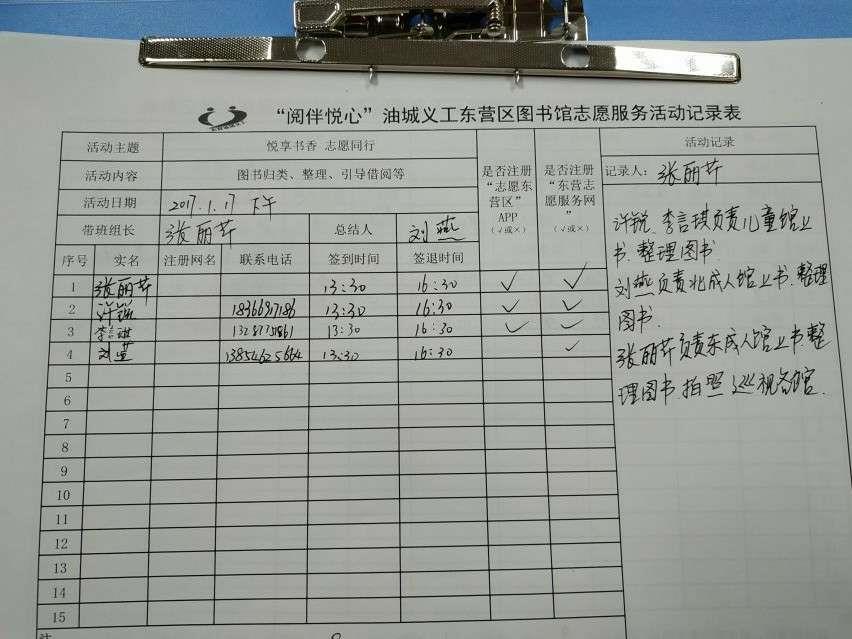 “阅伴悦心”油城义工东营区图书馆志愿服务活动记录表
活动主题 悦享书香 志愿同行 是否注册“志愿东营区”APP(√或×) 是否注册“东营志愿服务网”(√或×) 活动记录
活动内容 图书归类、整理、引导借阅等 记录人: 张丽芹
活动日期 2017.1.17 下午
带班组长 张丽芹 总结人 刘燕
序号 实名 注册网名 联系电话 签到时间 签退时间
1 张丽芹 13:30 16:30 ✓ ✓
2 许锐 13:30 16:30 ✓ ✓
3 李言琪 13:30 16:30 ✓ ✓
4 刘燕 13854625664 13:30 16:30 ✓
5
6
7
8
9
10
11
12
13
14
15
许锐、李言琪负责儿童馆上
书.整理图书.
刘燕负责北成人馆上书.整理
图书.
张丽芹负责东成人馆上书整
理图书.拍照.巡视各馆.